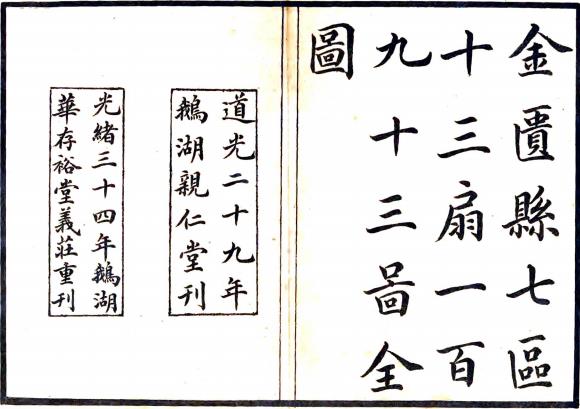 金匱縣七區
十三扇一百
九十三啚全
圖
道光二十九年
鵝湖親仁堂刊
光緒三十四年鵝湖
華存裕堂義莊重刊